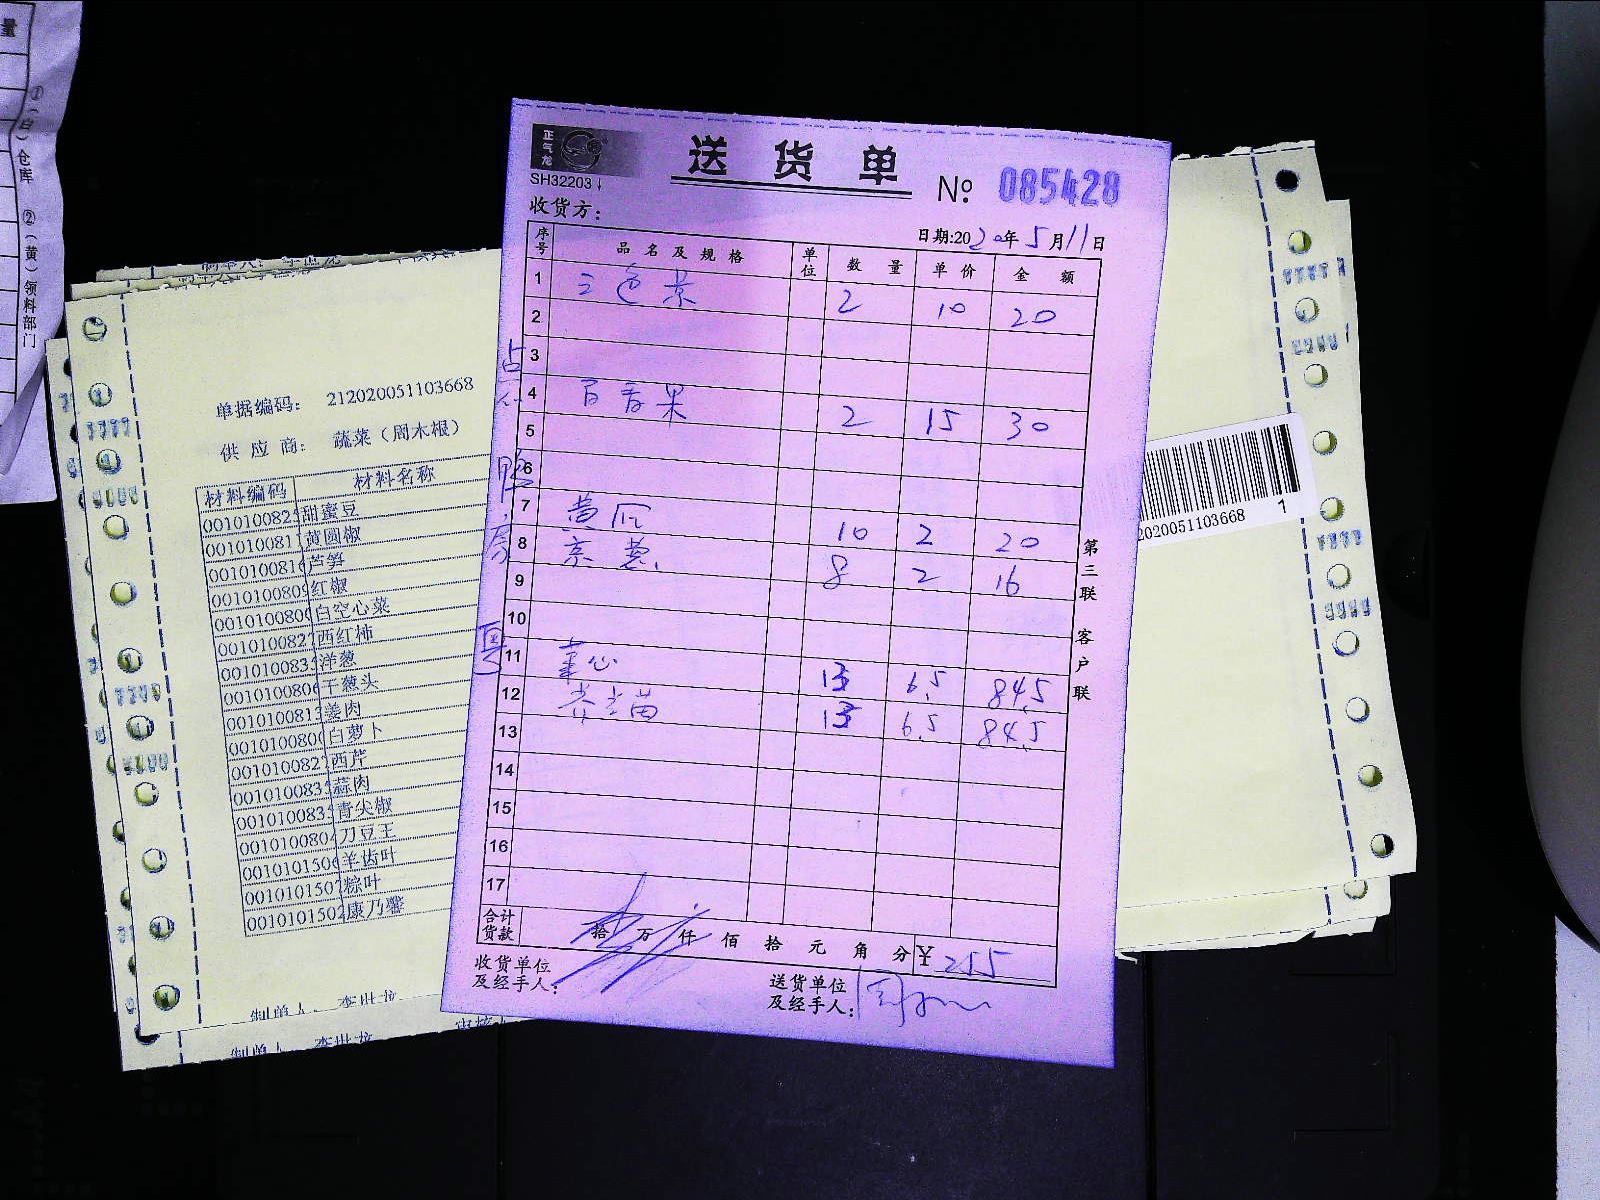 量
①(白)仓库 ②(黄)领料部门
正气龙
SH32203
送货单
№ 085428
收货方：
日期:2020年5月11日
序号 品名及规格 单位 数量 单价 金额
1 三色堇 2 10 20
2
3
4 百香果 2 15 30
5
6
7 黄瓜 10 2 20
8 京葱 8 2 16
9
10
11 菜心 13 6.5 84.5
12 芥兰苗 13 6.5 84.5
13
14
15
16
17
合计货款 拾 万 仟 佰 拾 元 角 分 ¥ 255
收货单位及经手人：
送货单位及经手人：
第三联 客户联
单据编码： 212020051103668
供应商： 蔬菜（周木根）
材料编码 材料名称
001010082 甜蜜豆
001010081 黄圆椒
001010081 芦笋
001010080 红椒
001010080 白空心菜
001010082 西红柿
001010083 洋葱
001010080 干葱头
001010081 姜肉
001010080 白萝卜
001010082 西芹
001010083 蒜肉
001010083 青尖椒
001010080 刀豆王
001010150 羊齿叶
001010150 粽叶
001010150 康乃馨
制单人 李世龙
制单人 李世龙
2020051103668 1